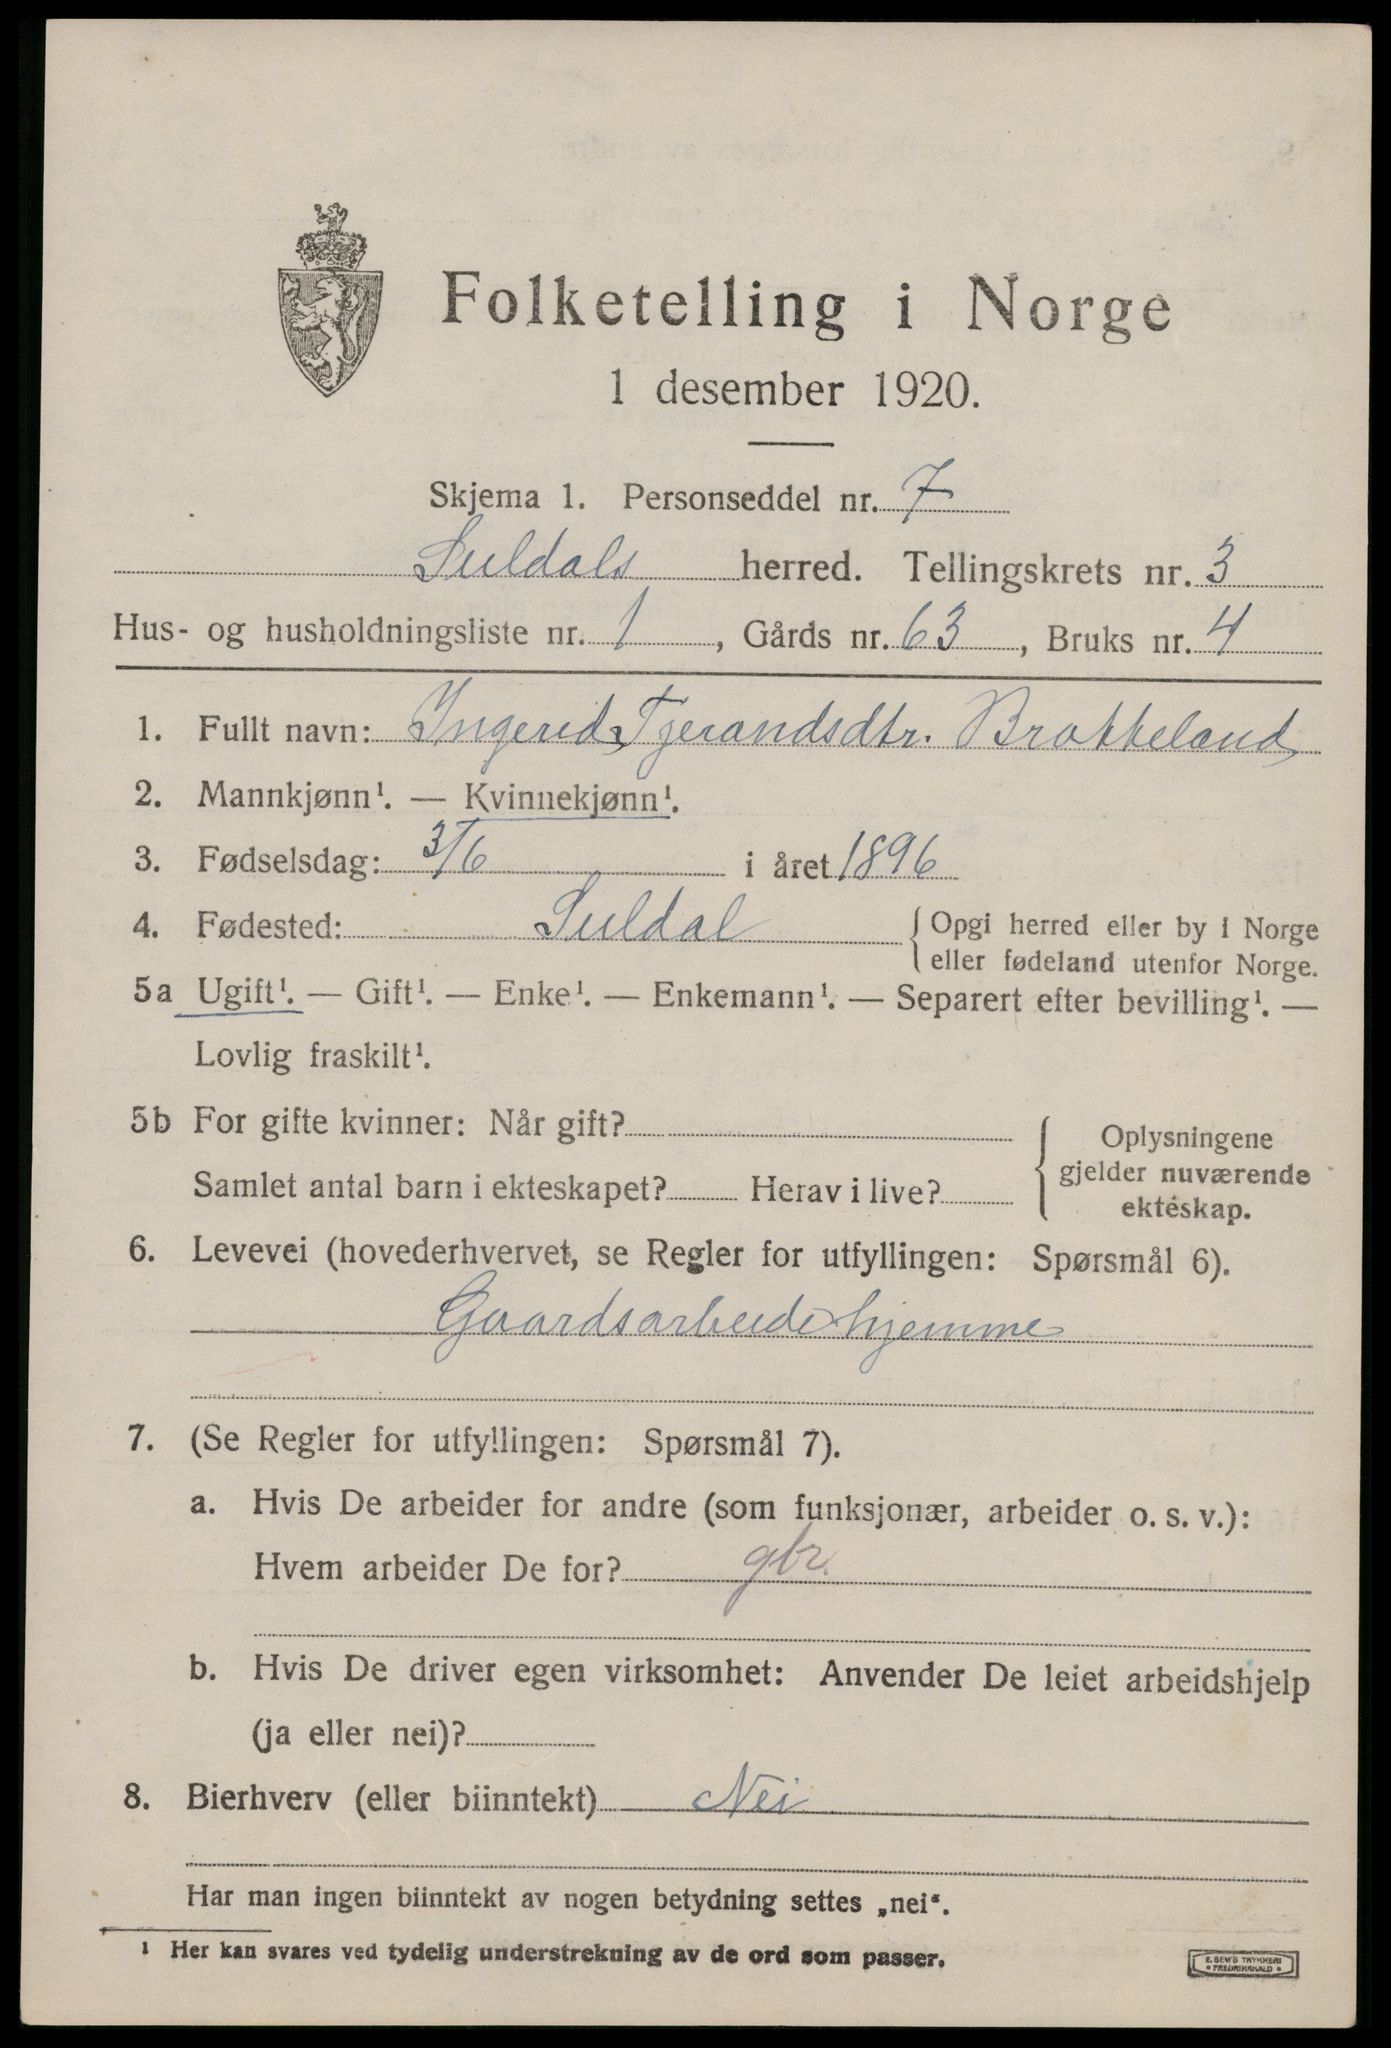 Folketelling i Norge
1 desember 1920.
Skjema 1. Personseddel nr. 7
Suldals herred. Tellingskrets nr. 3
Hus- og husholdningsliste nr. 1, Gårds nr. 63, Bruks nr. 4
1. Fullt navn: Ingerid Tjerandsdtr. Brakkeland
2. Mannkjønn¹. — Kvinnekjønn¹.
3. Fødselsdag: 3/6 i året 1896
4. Fødested: Suldal { Opgi herred eller by i Norge
eller fødeland utenfor Norge.
5a Ugift¹. — Gift¹. — Enke¹. — Enkemann¹. — Separert efter bevilling¹. —
Lovlig fraskilt¹.
5b For gifte kvinner: Når gift?
Samlet antal barn i ekteskapet? Herav i live?
Oplysningene
gjelder nuværende
ekteskap.
6. Levevei (hovederhvervet, se Regler for utfyllingen: Spørsmål 6).
Gaardsarbeide hjemme
7. (Se Regler for utfyllingen: Spørsmål 7).
a. Hvis De arbeider for andre (som funksjonær, arbeider o. s. v.):
Hvem arbeider De for? gbr.
b. Hvis De driver egen virksomhet: Anvender De leiet arbeidshjelp
(ja eller nei)?
8. Bierhverv (eller biinntekt) Nei
Har man ingen biinntekt av nogen betydning settes „nei“.
¹ Her kan svares ved tydelig understrekning av de ord som passer.
E. SEM'S TRYKKERI
• FREDRIKSHALD •